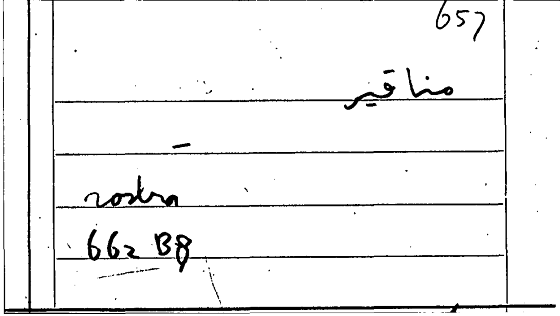 657
مناقير
–
rostra
662 B8